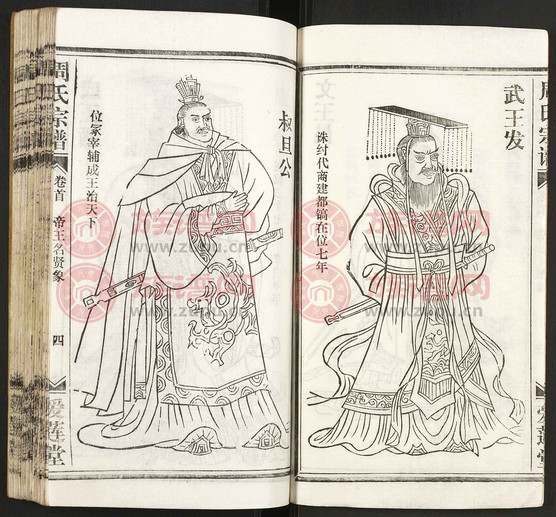 武王发
诛纣代商建都镐在位七年
叔旦公
位冢宰辅成王治天下
周氏宗谱
卷首
帝王名贤象
四
爱莲堂
万家谱网
www.zupu.cn